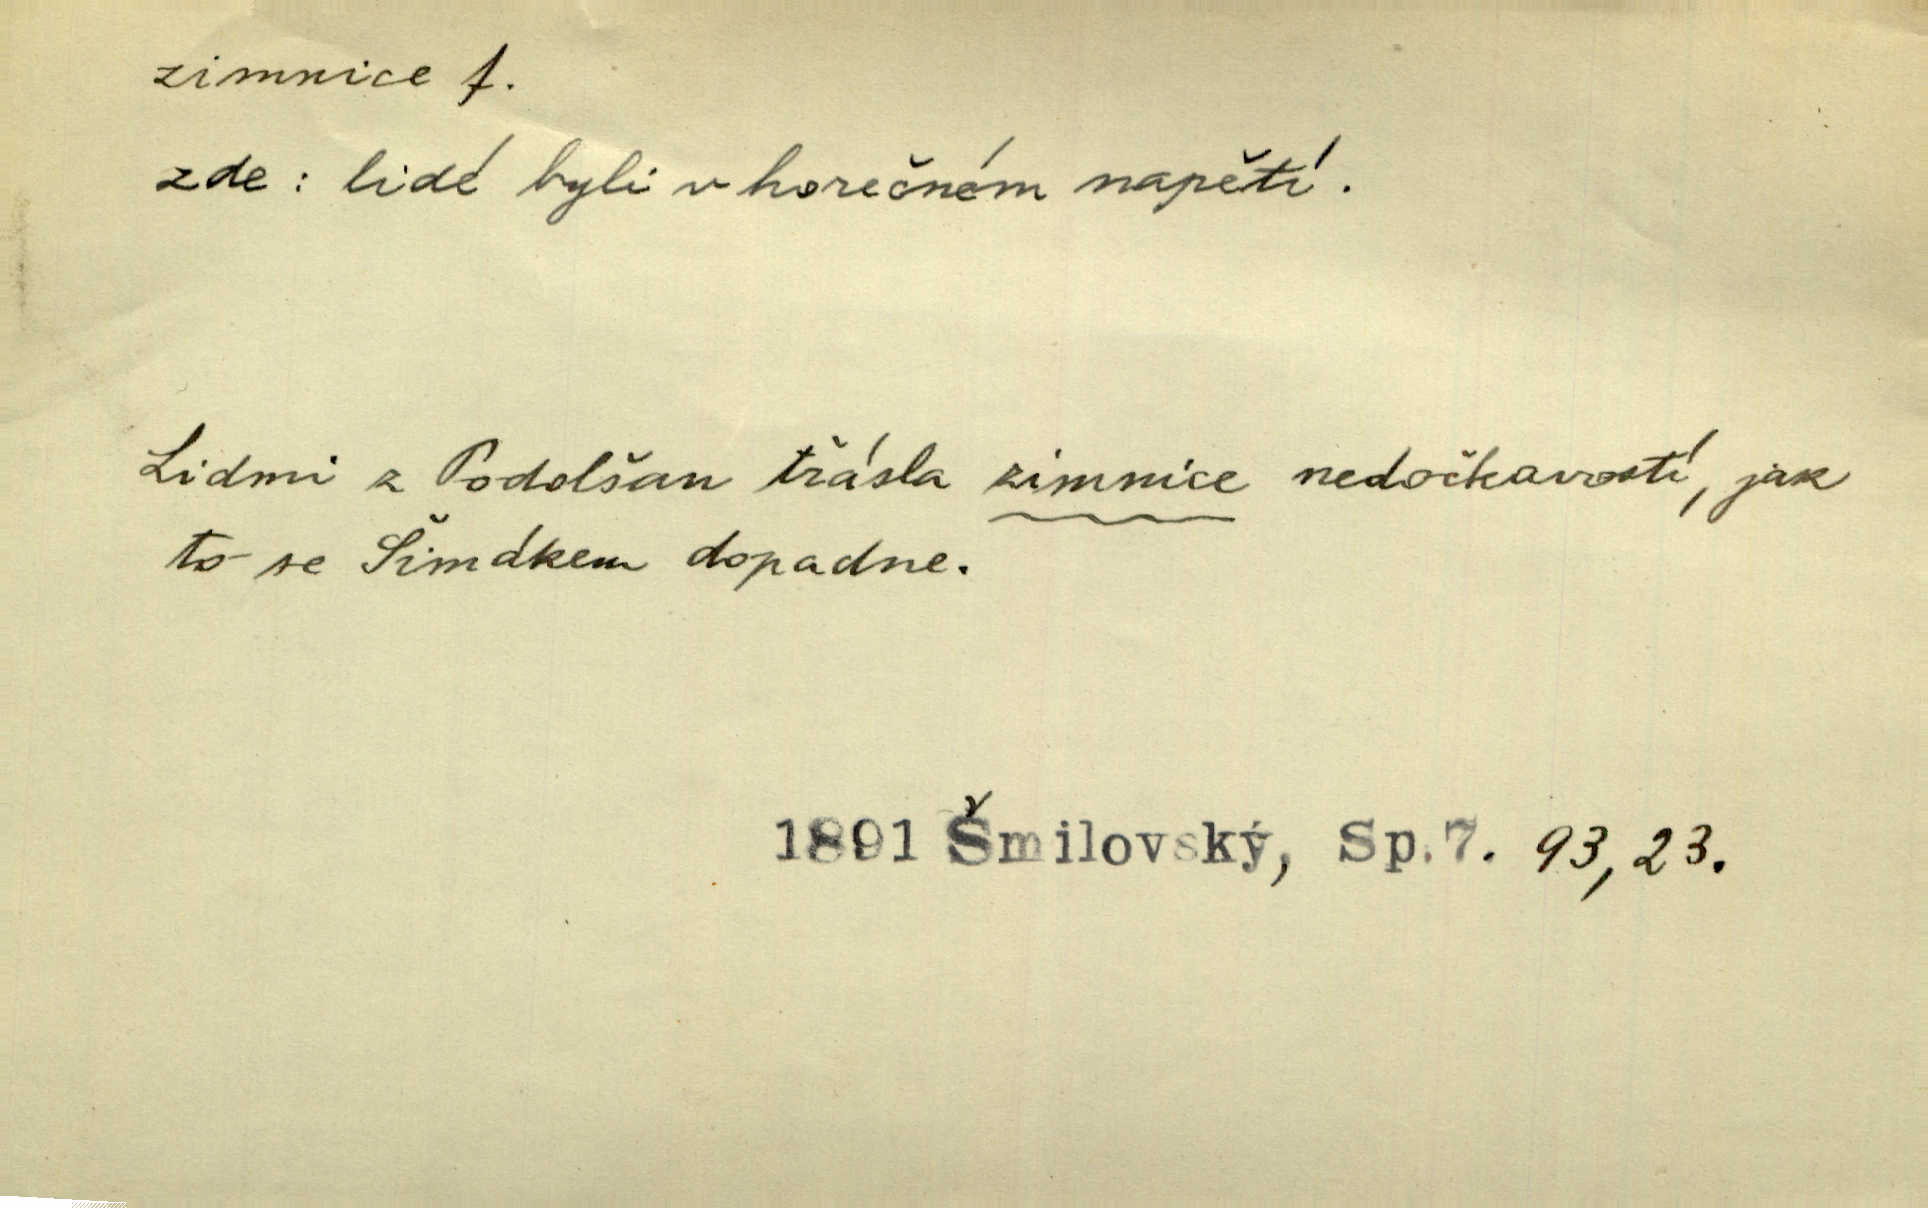 zimnice f.
zde: lidé byli v horečném napětí.
Lidmi z Podolšan třásla zimnice nedočkavostí, jak
to se Šimákem dopadne.
1891 Šmilovský, Sp.7. 93,23.